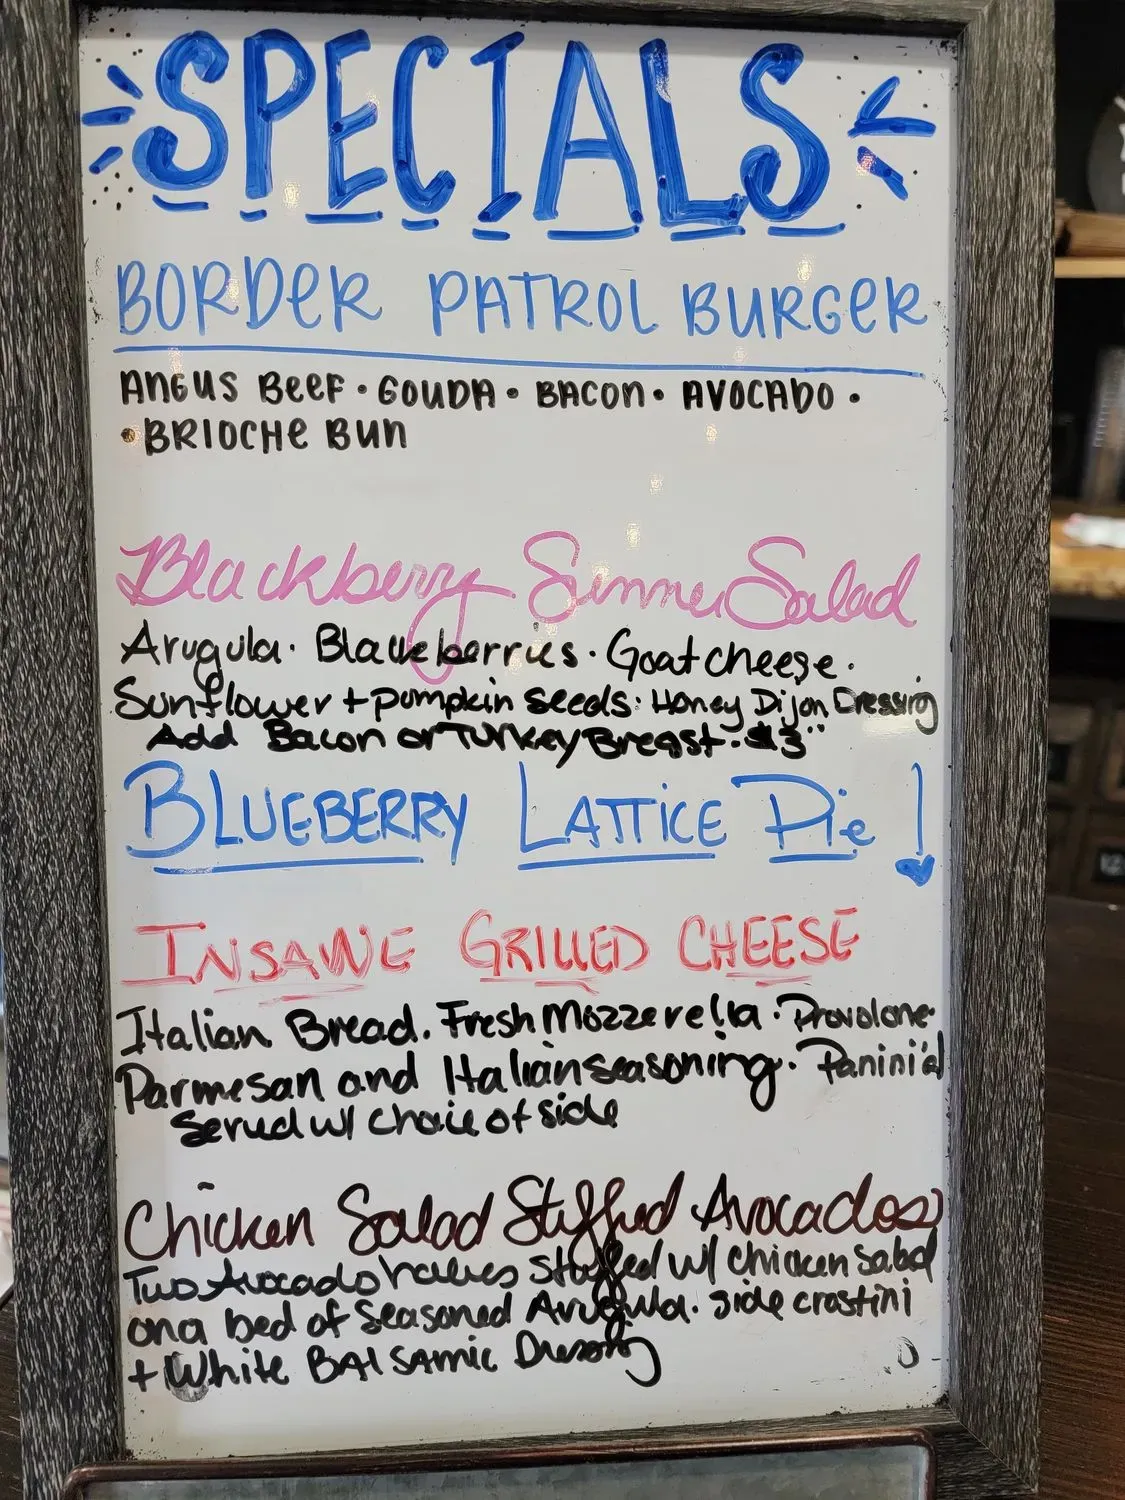 SPECIALS
BORDER PATROL BURGER
ANGUS BEEF • GOUDA • BACON • AVOCADO •
• BRIOCHE BUN
Blackberry Summer Salad
Arugula · Blackberries · Goat cheese ·
Sunflower + pumpkin seeds · Honey Dijon Dressing
Add Bacon or Turkey Breast · $3
BLUEBERRY LATTICE Pie!
INSANE GRILLED CHEESE
Italian Bread · Fresh Mozzerella · Provolone ·
Parmesan and Italian seasoning · Panini'd
Served w/ choice of side
Chicken Salad Stuffed Avocados
Two Avocado halves stuffed w/ chicken salad
on a bed of seasoned Arugula · side crostini
+ White BALSAMIC Dressing